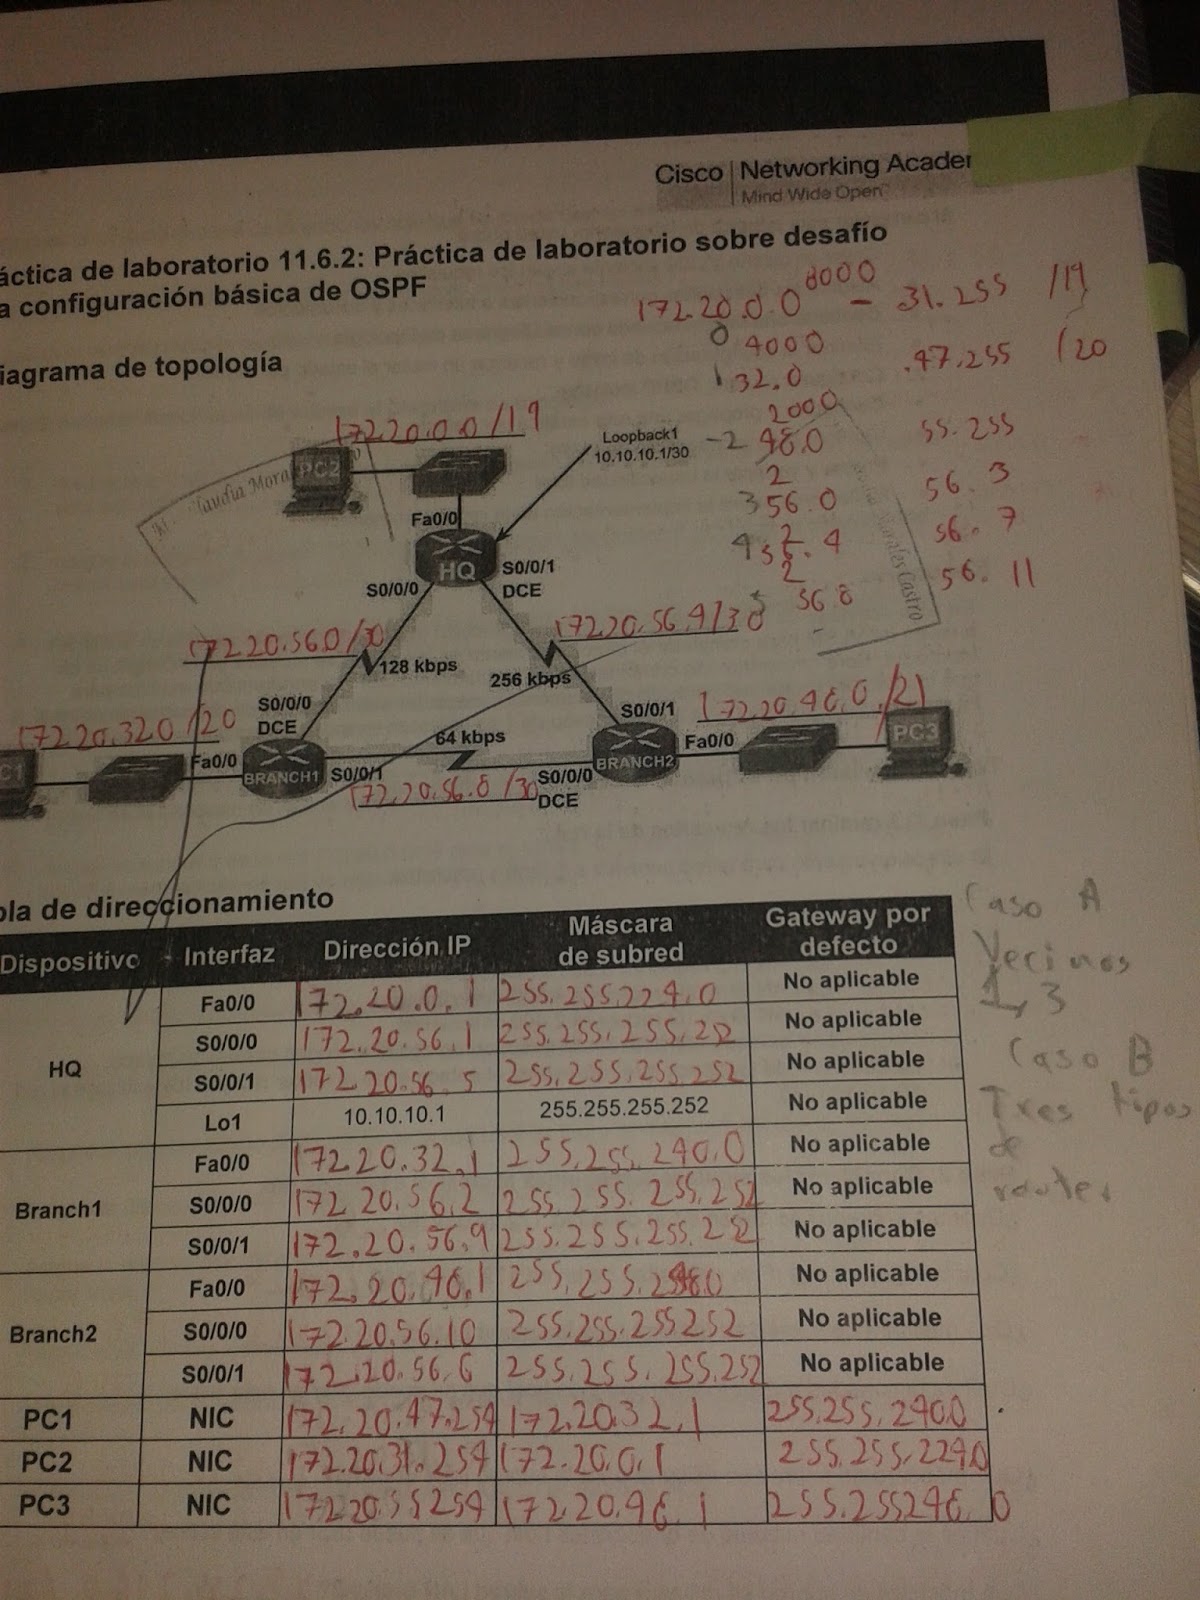 Cisco Networking Acade
Mind Wide Open
áctica de laboratorio 11.6.2: Práctica de laboratorio sobre desafío
a configuración básica de OSPF
iagrama de topología
8000
172.20.0.0 - 31.255 /19
0 4000
1 32.0 .47.255 /20
2000
-2 48.0 55.255
2
3 56.0 56.3
2
4 56.4 56.7
2
5 56.8 56.11
172.20.0.0/19
Loopback1
10.10.10.1/30
PC2
Claudia Mora
Morales Castro
Fa0/0
HQ
S0/0/1
DCE
S0/0/0
172.20.56.0/30
172.20.56.4/30
128 kbps
256 kbps
S0/0/0
DCE
S0/0/1
172.20.48.0/21
172.20.32.0/20
64 kbps
C1
Fa0/0
BRANCH1
S0/0/1
BRANCH2
Fa0/0
PC3
S0/0/0
DCE
172.20.56.8/30
bla de direccionamiento
Dispositivo Interfaz Dirección IP Máscara de subred Gateway por defecto
HQ Fa0/0 172.20.0.1 255.255.224.0 No aplicable
S0/0/0 172.20.56.1 255.255.255.252 No aplicable
S0/0/1 172.20.56.5 255.255.255.252 No aplicable
Lo1 10.10.10.1 255.255.255.252 No aplicable
Branch1 Fa0/0 172.20.32.1 255.255.240.0 No aplicable
S0/0/0 172.20.56.2 255.255.255.252 No aplicable
S0/0/1 172.20.56.9 255.255.255.252 No aplicable
Branch2 Fa0/0 172.20.48.1 255.255.248.0 No aplicable
S0/0/0 172.20.56.10 255.255.255252 No aplicable
S0/0/1 172.20.56.6 255.255.255.252 No aplicable
PC1 NIC 172.20.47.254 172.20.32.1 255.255.240.0
PC2 NIC 172.20.31.254 172.20.0.1 255.255.224.0
PC3 NIC 172.20.55254 172.20.48.1 255.255248.0
Caso A
Vecinos
1, 3
Caso B
Tres tipos
de
router